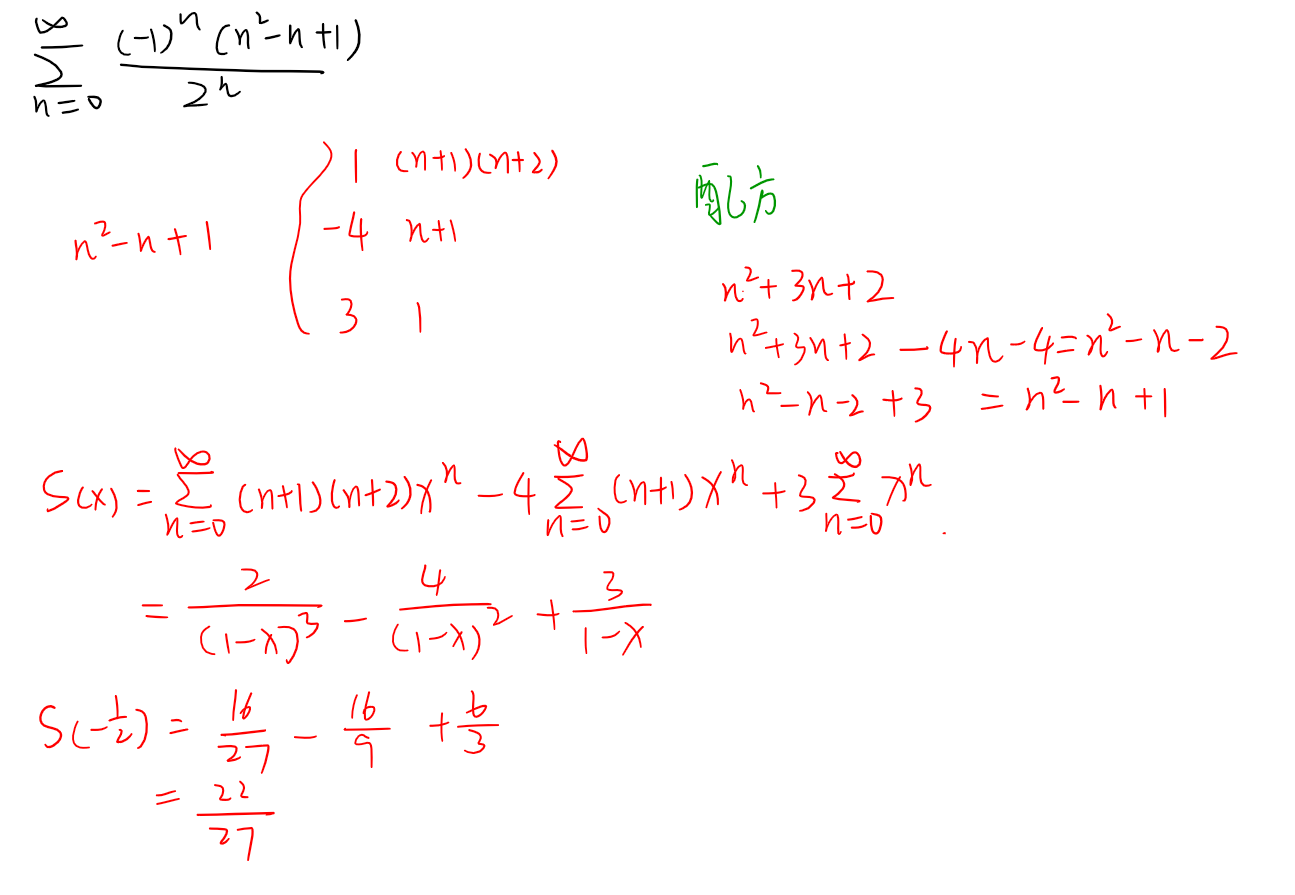 ∑_{n=0}^{∞} \frac{(-1)^n (n^2-n+1)}{2^n}
n^2-n+1 { 1 (n+1)(n+2)
-4 n+1
3 1
配方
n^2+3n+2
n^2+3n+2 -4n-4=n^2-n-2
n^2-n-2+3 = n^2-n+1
S(x) = ∑_{n=0}^{∞} (n+1)(n+2)x^n -4 ∑_{n=0}^{∞} (n+1)x^n +3 ∑_{n=0}^{∞} x^n.
= \frac{2}{(1-x)^3} - \frac{4}{(1-x)^2} + \frac{3}{1-x}
S(-\frac{1}{2}) = \frac{16}{27} - \frac{16}{9} + \frac{6}{3}
= \frac{22}{27}